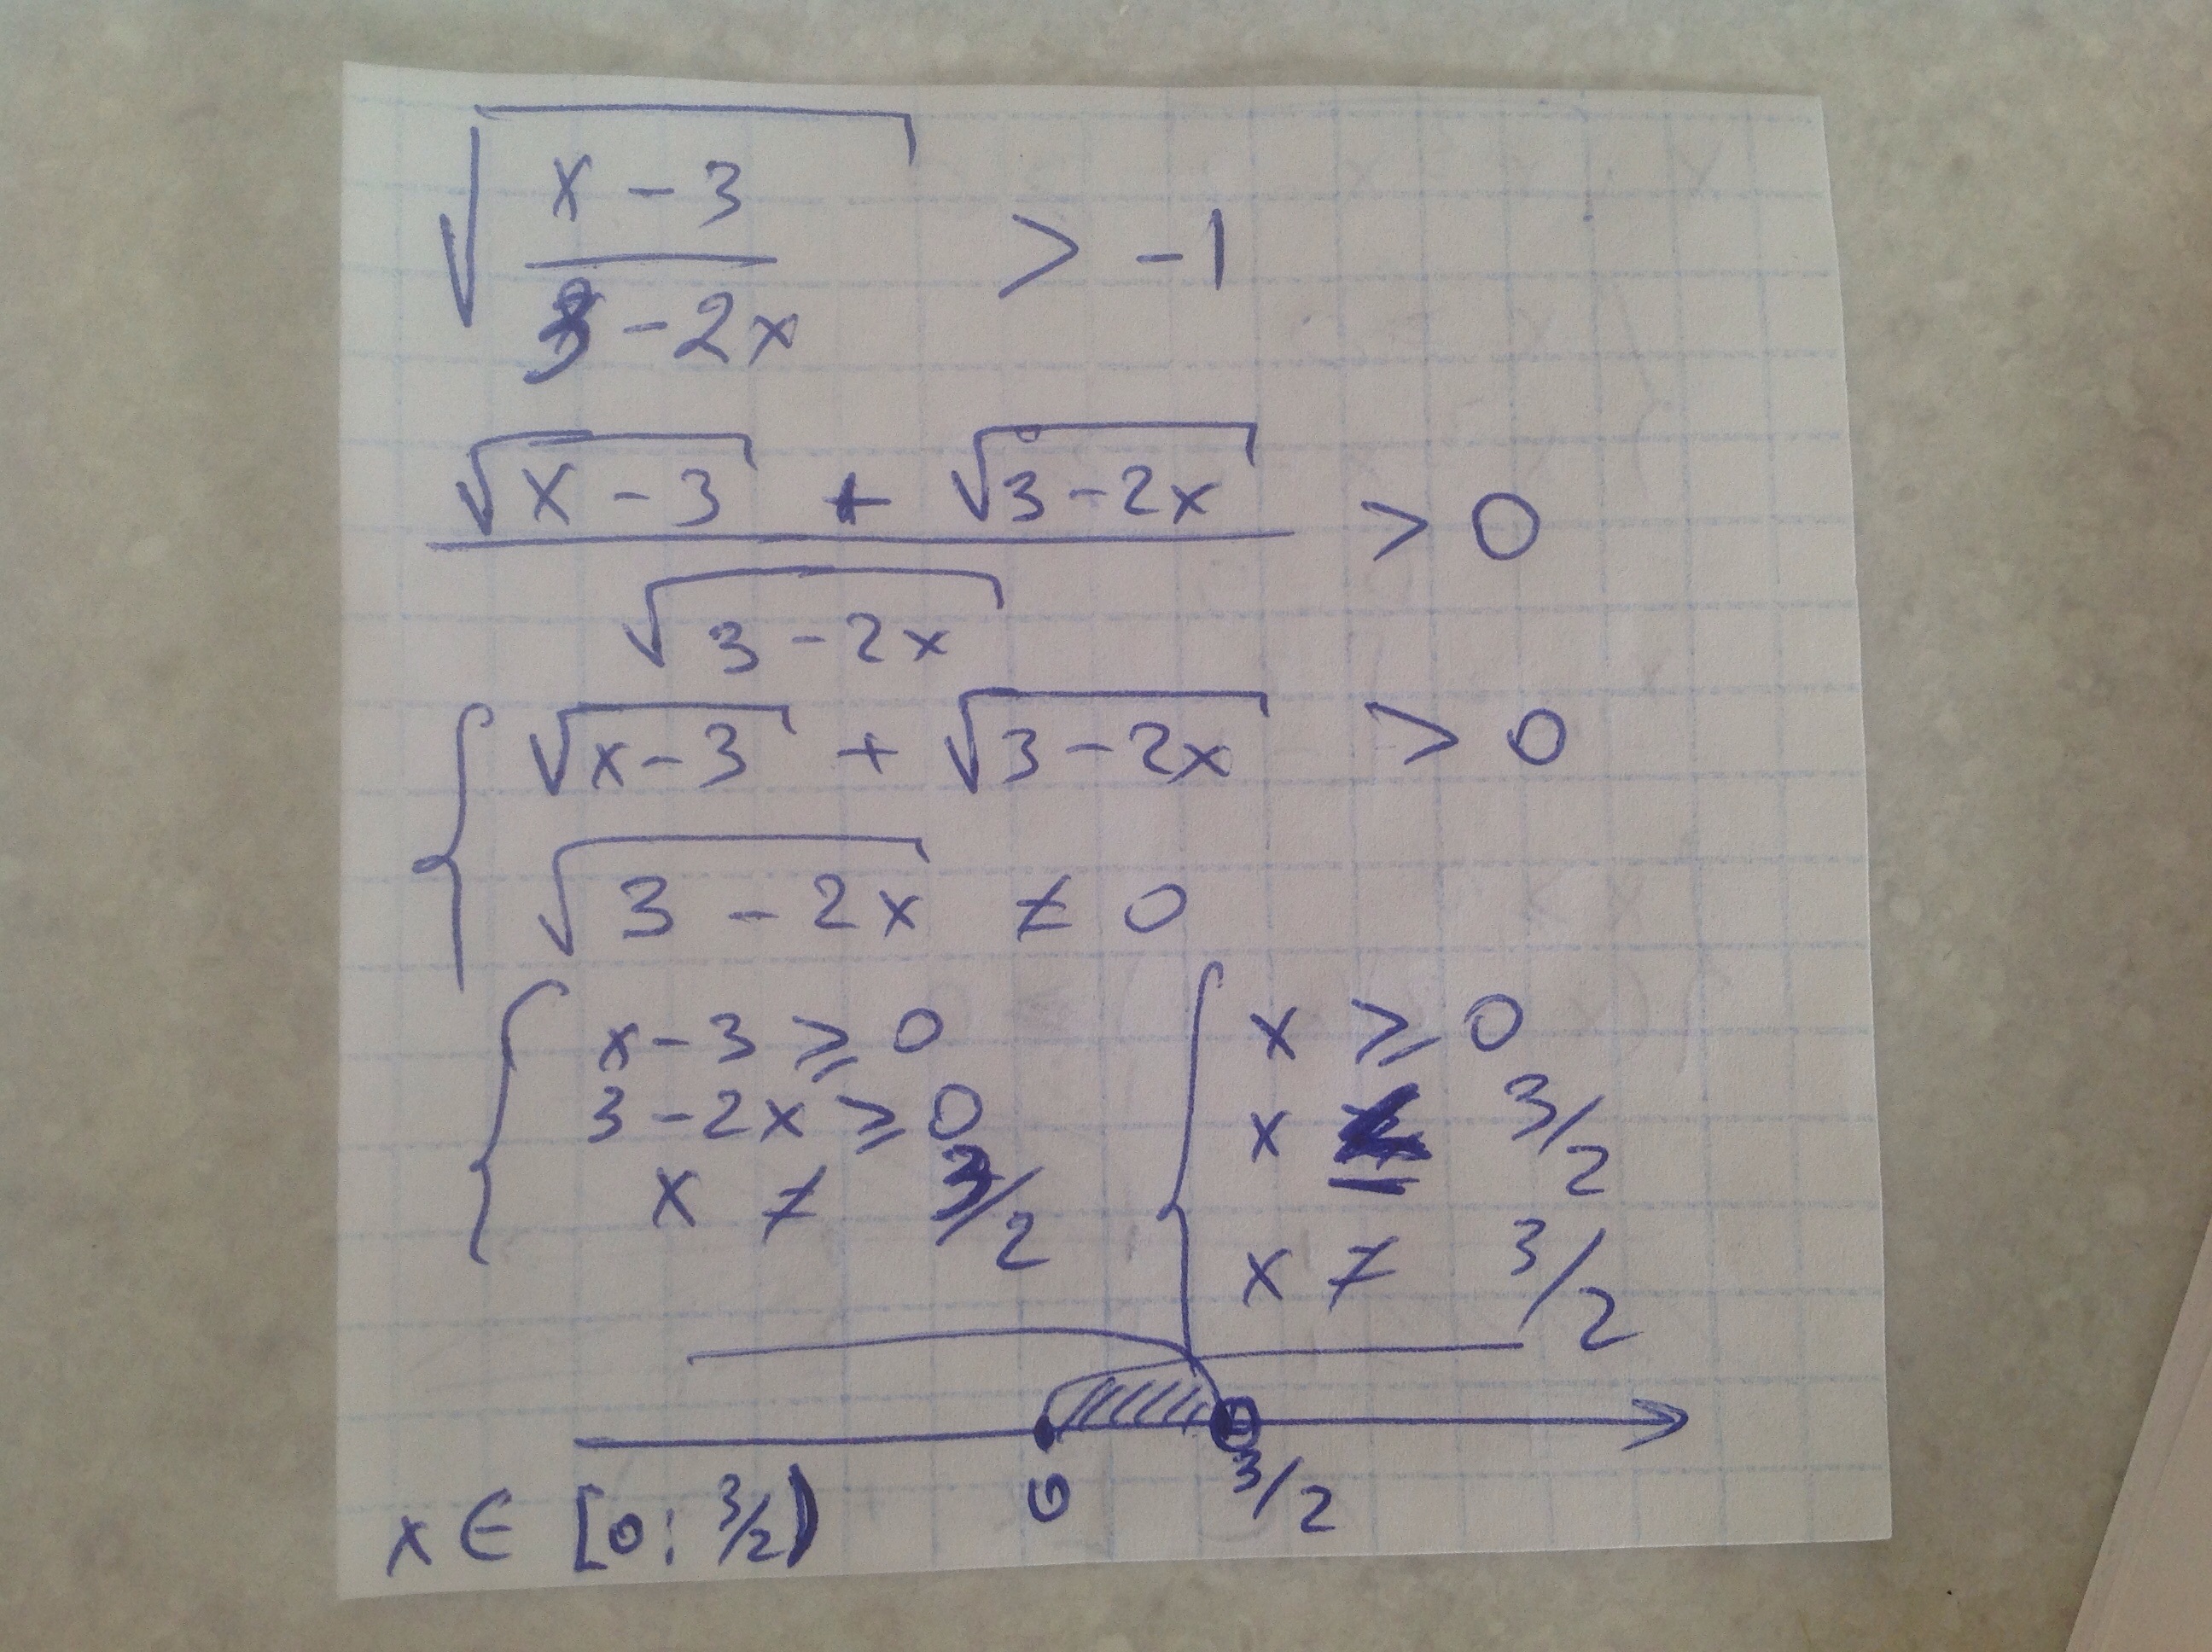 √(x - 3 / 3 - 2x) > -1
(√(x - 3) + √(3 - 2x)) / √(3 - 2x) > 0
{ √(x - 3) + √(3 - 2x) > 0
√(3 - 2x) ≠ 0
{ x - 3 ⩾ 0 { x ⩾ 0
3 - 2x ⩾ 0 x 3/2
x ≠ 3/2 x ≠ 3/2
0 3/2
x ∈ [0; 3/2)